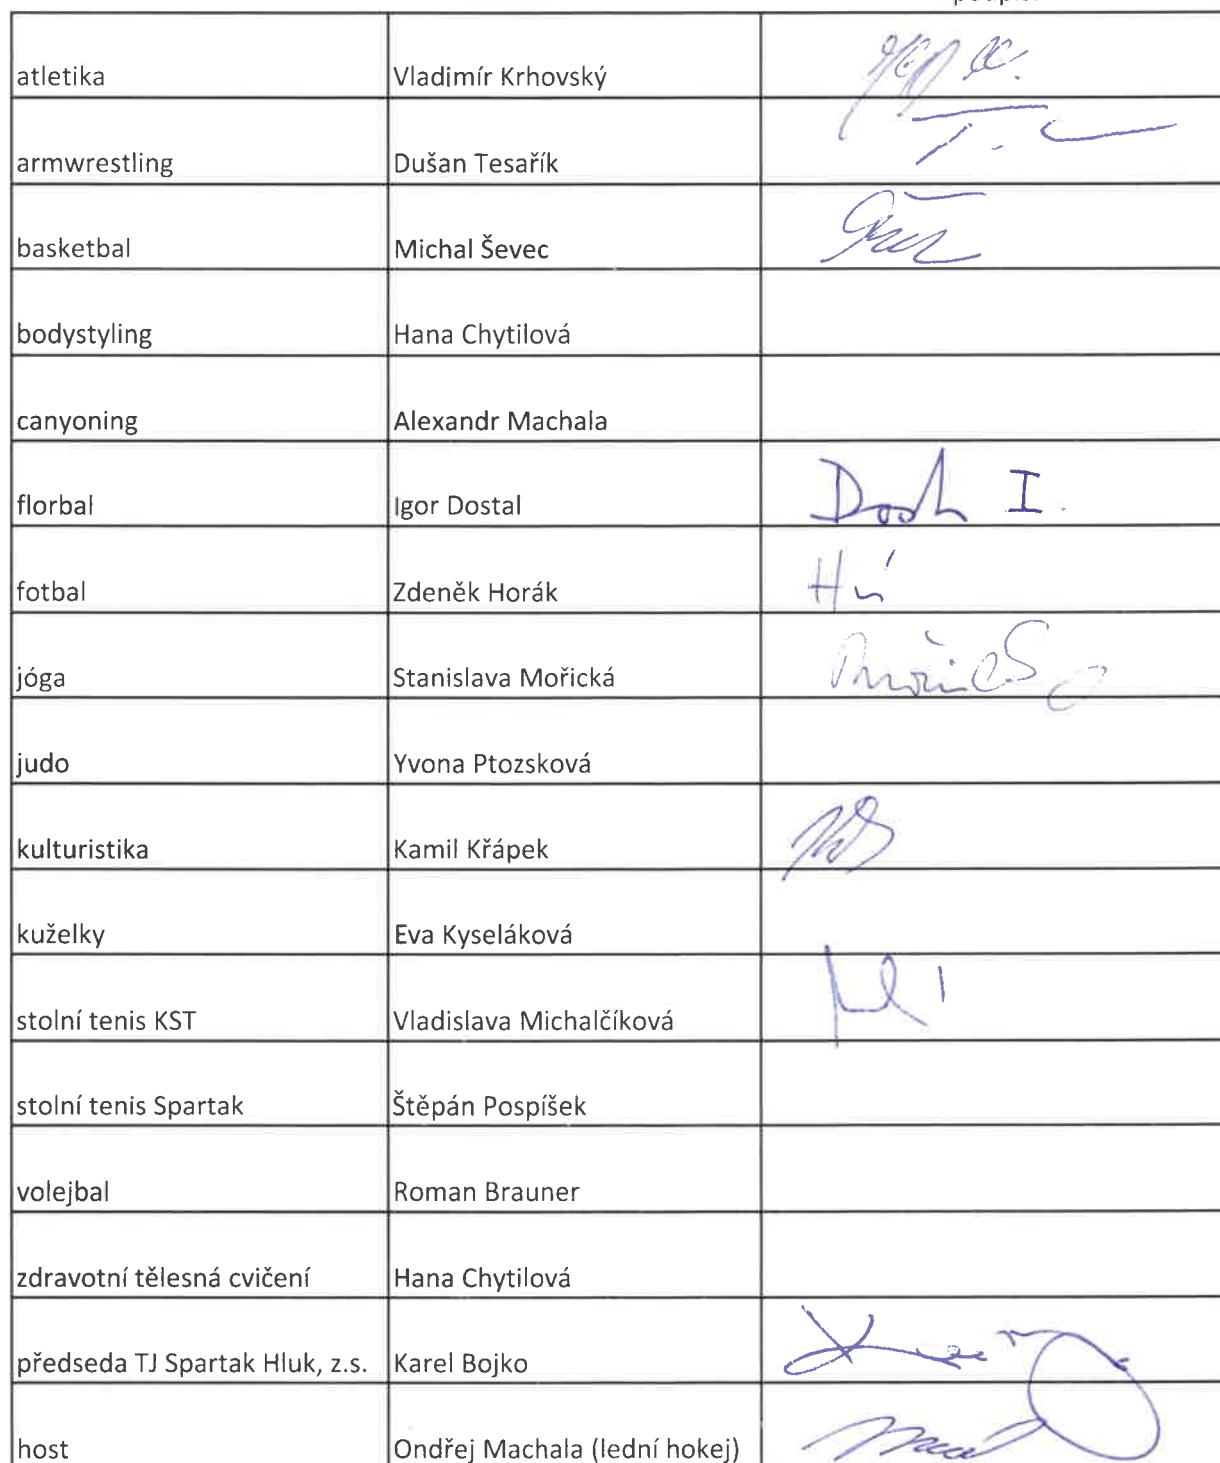 atletika Vladimír Krhovský
armwrestling Dušan Tesařík
basketbal Michal Ševec
bodystyling Hana Chytilová
canyoning Alexandr Machala
florbal Igor Dostal
fotbal Zdeněk Horák
jóga Stanislava Mořická
judo Yvona Ptozsková
kulturistika Kamil Křápek
kuželky Eva Kyseláková
stolní tenis KST Vladislava Michalčíková
stolní tenis Spartak Štěpán Pospíšek
volejbal Roman Brauner
zdravotní tělesná cvičení Hana Chytilová
předseda TJ Spartak Hluk, z.s. Karel Bojko
host Ondřej Machala (lední hokej)